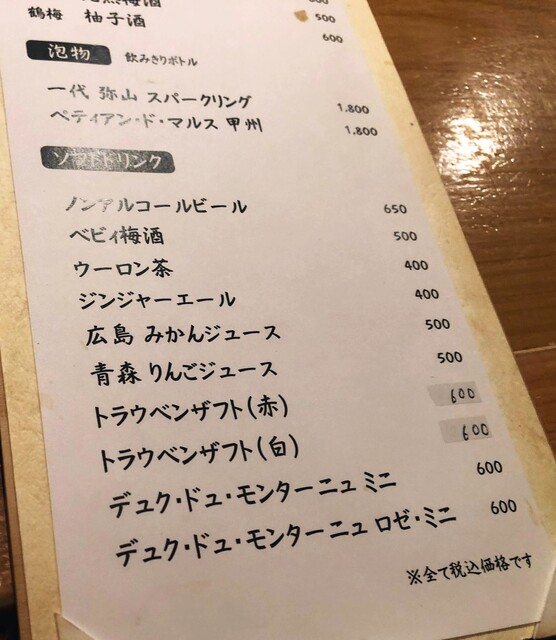 梅酒
鶴梅 柚子酒 500
600
泡物 飲みきりボトル
一代 弥山 スパークリング 1,800
ペティアン・ド・マルス 甲州 1,800
ソフトドリンク
ノンアルコールビール 650
ベビィ梅酒 500
ウーロン茶 400
ジンジャーエール 400
広島 みかんジュース 500
青森 りんごジュース 500
トラウベンザフト(赤) 600
トラウベンザフト(白) 600
デュク・ドュ・モンターニュ ミニ 600
デュク・ドュ・モンターニュ ロゼ・ミニ 600
※全て税込価格です